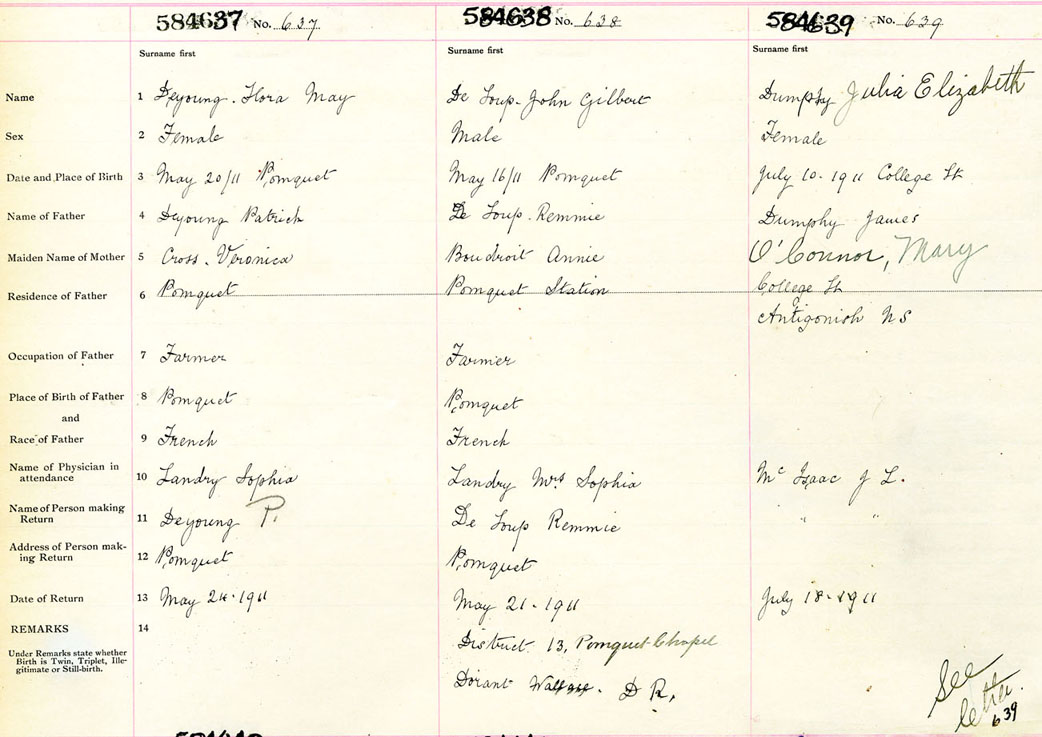 584637 No. 637 584638 No. 638 584639 No. 639
Surname first Surname first Surname first
Name 1 Deyoung. Flora May De Loup. John Gilbert Dumphy Julia Elizabeth
Sex 2 Female Male Female
Date and Place of Birth 3 May 20/11 Pomquet May 16/11 Pomquet July 10. 1911 College St
Name of Father 4 Deyoung Patrick De Loup. Remmie Dumphy James
Maiden Name of Mother 5 Cross. Veronica Boudroit Annie O'Connor, Mary
Residence of Father 6 Pomquet Pomquet Station College St
Antigonish NS
Occupation of Father 7 Farmer Farmer
Place of Birth of Father 8 Pomquet Pomquet
and
Race of Father 9 French French
Name of Physician in
attendance 10 Landry Sophia Landry Mrs Sophia Mc Isaac J L.
Name of Person making
Return 11 Deyoung P. De Loup Remmie " "
Address of Person mak-
ing Return 12 Pomquet Pomquet
Date of Return 13 May 24. 1911 May 21. 1911 July 18. 1911
REMARKS 14
District 13, Pomquet Chapel
Under Remarks state whether
Birth is Twin, Triplet, Ille-
gitimate or Still-birth.
Dorant D R.
See
letter.
639